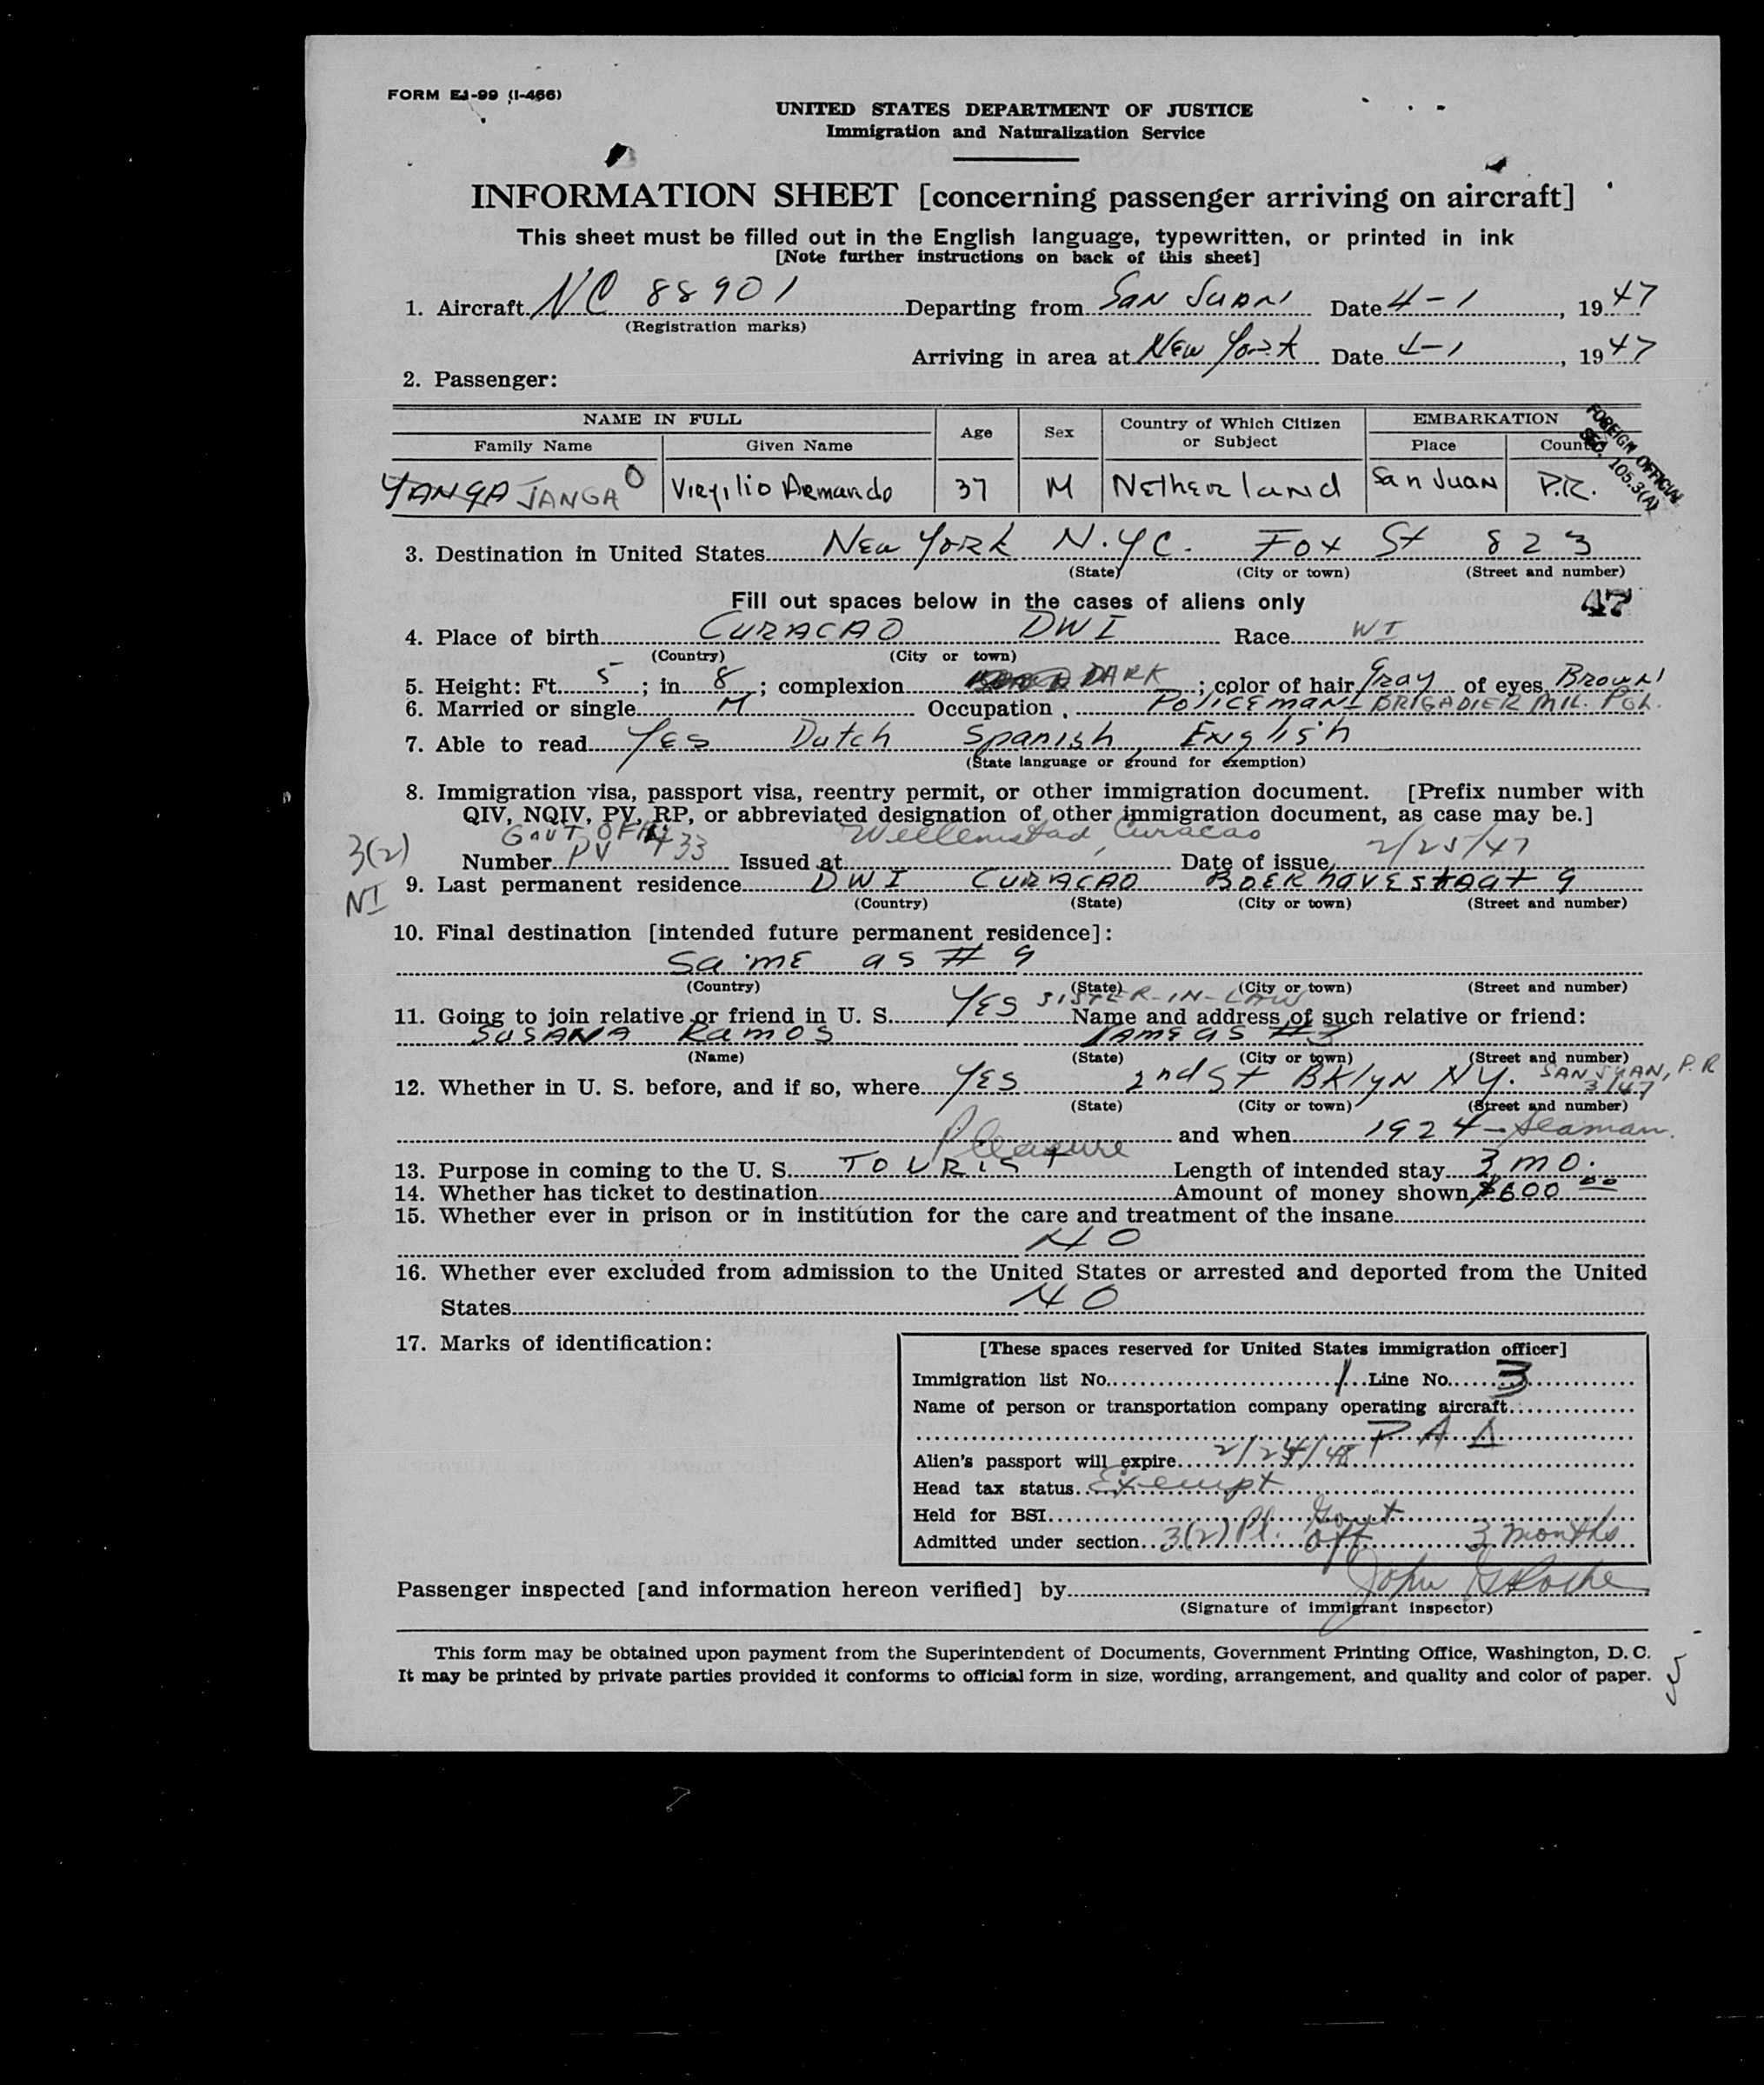 FORM EJ-99 (I-466)
UNITED STATES DEPARTMENT OF JUSTICE
Immigration and Naturalization Service
INFORMATION SHEET [concerning passenger arriving on aircraft]
This sheet must be filled out in the English language, typewritten, or printed in ink
[Note further instructions on back of this sheet]
1. Aircraft NC 88901 Departing from San Juan Date 4-1, 1947
(Registration marks)
Arriving in area at New York Date 4-1, 1947
2. Passenger:
NAME IN FULL Age Sex Country of Which Citizen or Subject EMBARKATION
Family Name Given Name Place Country
FOREIGN OFFICIAL
SEC. 105.3(A)
YANGA JANGA Virgilio Armando 37 M Netherland San Juan P.R.
3. Destination in United States New York N.Y.C. Fox St 823
(State) (City or town) (Street and number)
Fill out spaces below in the cases of aliens only 47
4. Place of birth CURACAO DWI Race WI
(Country) (City or town)
5. Height: Ft. 5; in 8; complexion DARK; color of hair Gray of eyes Brown
6. Married or single M Occupation Policeman - BRIGADIER MIL. POL.
7. Able to read Yes Dutch Spanish, English
(State language or ground for exemption)
8. Immigration visa, passport visa, reentry permit, or other immigration document. [Prefix number with
QIV, NQIV, PV, RP, or abbreviated designation of other immigration document, as case may be.]
3(2) GOVT. OFF.
Number PV 433 Issued at Willemstad, Curacao Date of issue 2/25/47
NI 9. Last permanent residence DWI CURACAO BOERhavestaat 9
(Country) (State) (City or town) (Street and number)
10. Final destination [intended future permanent residence]:
Same as # 9
(Country) (State) (City or town) (Street and number)
11. Going to join relative or friend in U. S. YES SISTER-IN-LAW Name and address of such relative or friend:
SUSANA Ramos Same as #3
(Name) (State) (City or town) (Street and number)
12. Whether in U. S. before, and if so, where YES 2nd St BKlyN NY. SAN JUAN, P.R 3/47
(State) (City or town) (Street and number)
and when 1924 - Seaman.
Pleasure
13. Purpose in coming to the U. S. TOURIST Length of intended stay 3 mo.
14. Whether has ticket to destination Amount of money shown $600 00
15. Whether ever in prison or in institution for the care and treatment of the insane
NO
16. Whether ever excluded from admission to the United States or arrested and deported from the United
States NO
17. Marks of identification:
[These spaces reserved for United States immigration officer]
Immigration list No. 1 Line No. 3
Name of person or transportation company operating aircraft
P A A
Alien's passport will expire 2/24/48
Head tax status Exempt
Held for BSI
Admitted under section 3(2) Pl. Govt Off 3 months
Passenger inspected [and information hereon verified] by John
(Signature of immigrant inspector)
This form may be obtained upon payment from the Superintendent of Documents, Government Printing Office, Washington, D. C.
It may be printed by private parties provided it conforms to official form in size, wording, arrangement, and quality and color of paper.